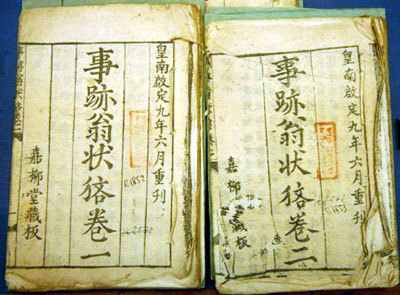 皇南啟定九年六月重刊
事跡翁状𤞦卷一
嘉柳堂藏板
皇南啟定九年六月重刊
事跡翁状𤞦卷二
嘉柳堂藏板